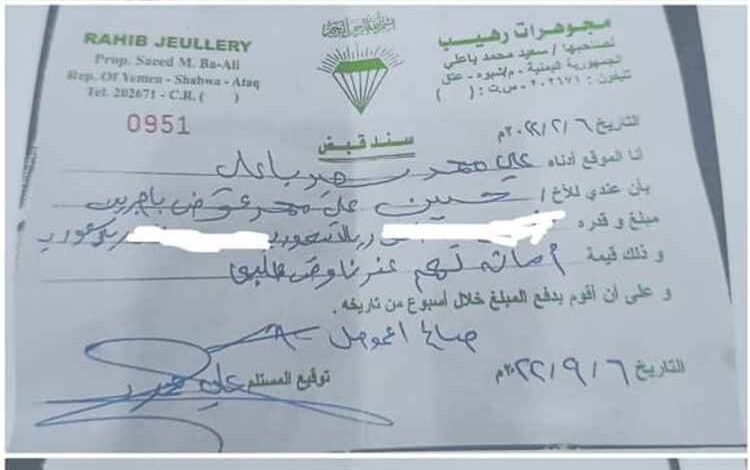 RAHIB JEULLERY
Prop. Saeed M. Ba-Ali
Rep. Of Yemen - Shabwa - Ataq
Tel. 202671 - C.R. ( )
0951
مجوهرات رهيب
لصاحبها / سعيد محمد باعلي
الجمهورية اليمنية - م/شبوه - عتق
تليفون : ٢٠٢٦٧١ - س.ت : ( )
سند قبض
التاريخ ٢٠٢٢/٢/٦م
أنا الموقع أدناه علي محمد سعيد باعلي
بأن عندي للأخ / حسين علي محمد عوض
مبلغ و قدره ريال سعودي
و ذلك قيمة أمانة لهم
و على أن أقوم بدفع المبلغ خلال أسبوع من تاريخه .
التاريخ ٢٠٢٢/٩/٦م
توقيع المستلم علي محمد